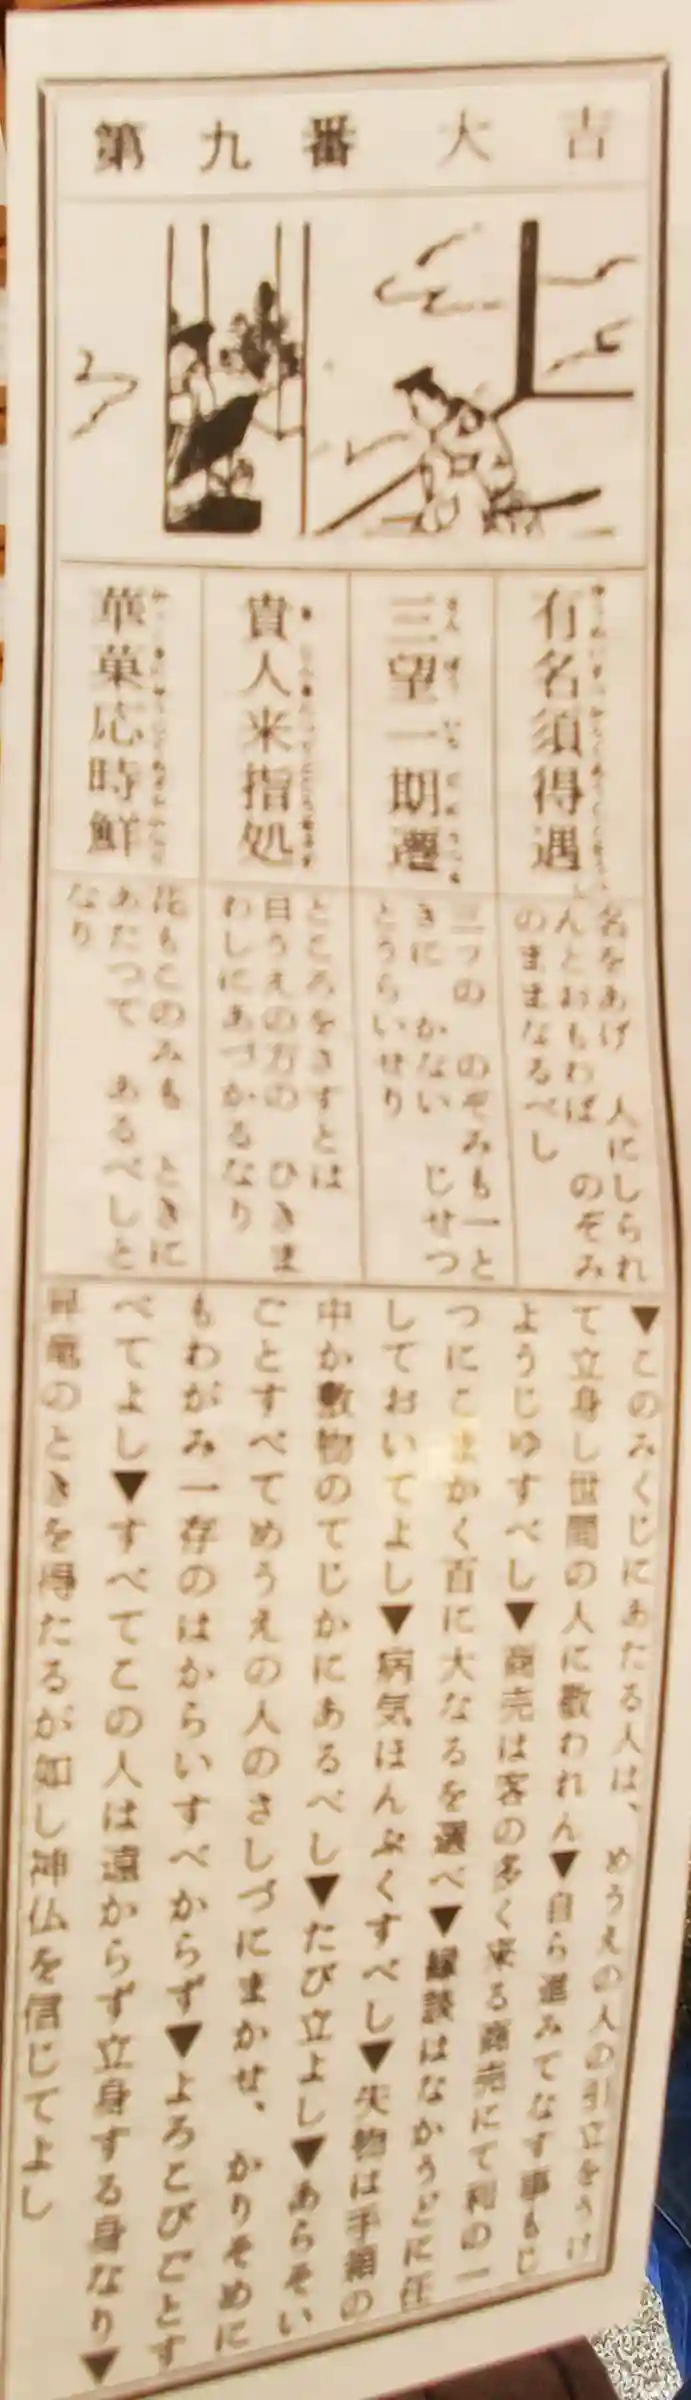 第九番大吉
有名須得遇
三望一期遷
貴人来指処
華菓応時鮮
名をあげ 人にしられ
んとおもわば のぞみ
のままなるべし
三ツの のぞみも一と
きに かない じせつ
とうらいせり
ところをさすとは
目うえの方の ひきま
わしにあづかるなり
花もこのみも ときに
あたつて あるべしと
なり
▼このみくじにあたる人は、めうえの人の引立をうけ
て立身し世間の人に敬われん▼自ら進みてなす事もじ
ようじゆすべし▼商売は客の多く来る商売にて利の一
つにこまかく百に大なるを選べ▼縁談はなかうどに任
しておいてよし▼病気ほんぷくすべし▼失物は手箱の
中か敷物のてじかにあるべし▼たび立よし▼あらそい
ごとすべてめうえの人のさしづにまかせ、かりそめに
もわがみ一存のはからいすべからず▼よろこびごとす
べてよし▼すべてこの人は遠からず立身する身なり▼
昇竜のときを得たるが如し神仏を信じてよし